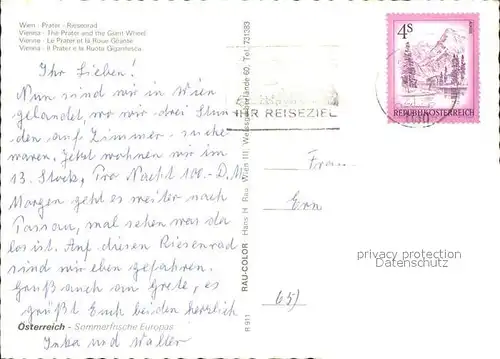 Wien - Prater - Riesenrad
Vienna - The Prater and the Giant Wheel
Vienne - Le Prater et la Roue Géante
Vienna - Il Prater e la Ruota Gigantesca
Ihr Lieben!
Nun sind wir in Wien
gelandet, wo wir drei Stun
den auf Zimmer-suche
waren. Jetzt wohnen wir im
13. Stock, Pro Nacht 108.- D.M
Morgen geht es weiter nach
Passau, mal sehen was da
los ist. Auf diesen Riesenrad
sind wir eben gefahren.
Gruß auch an Grete, es
grüßt Euch beiden herzlich
Inka und Walter
Österreich - Sommerfrische Europas
RAU-COLOR Hans H. Rau, Wien III, 60, Tel. 731383
R 911
IHR REISEZIEL
4S
REPUBLIK ÖSTERREICH
Frau
Ern
65)
privacy protection
Datenschutz